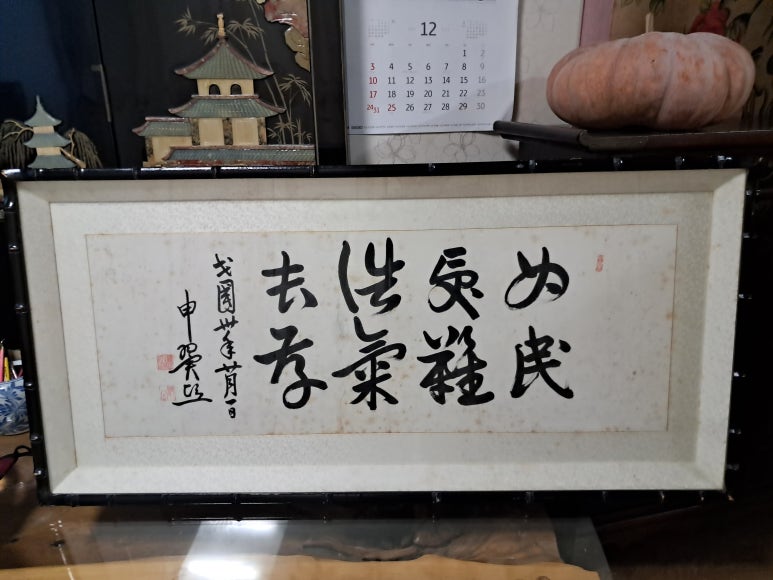 12
1 2
3 4 5 6 7 8 9
10 11 12 13 14 15 16
17 18 19 20 21 22 23
24 31 25 26 27 28 29 30
為民
難
浩氣
長存
國卅年 月一日
申翼熙